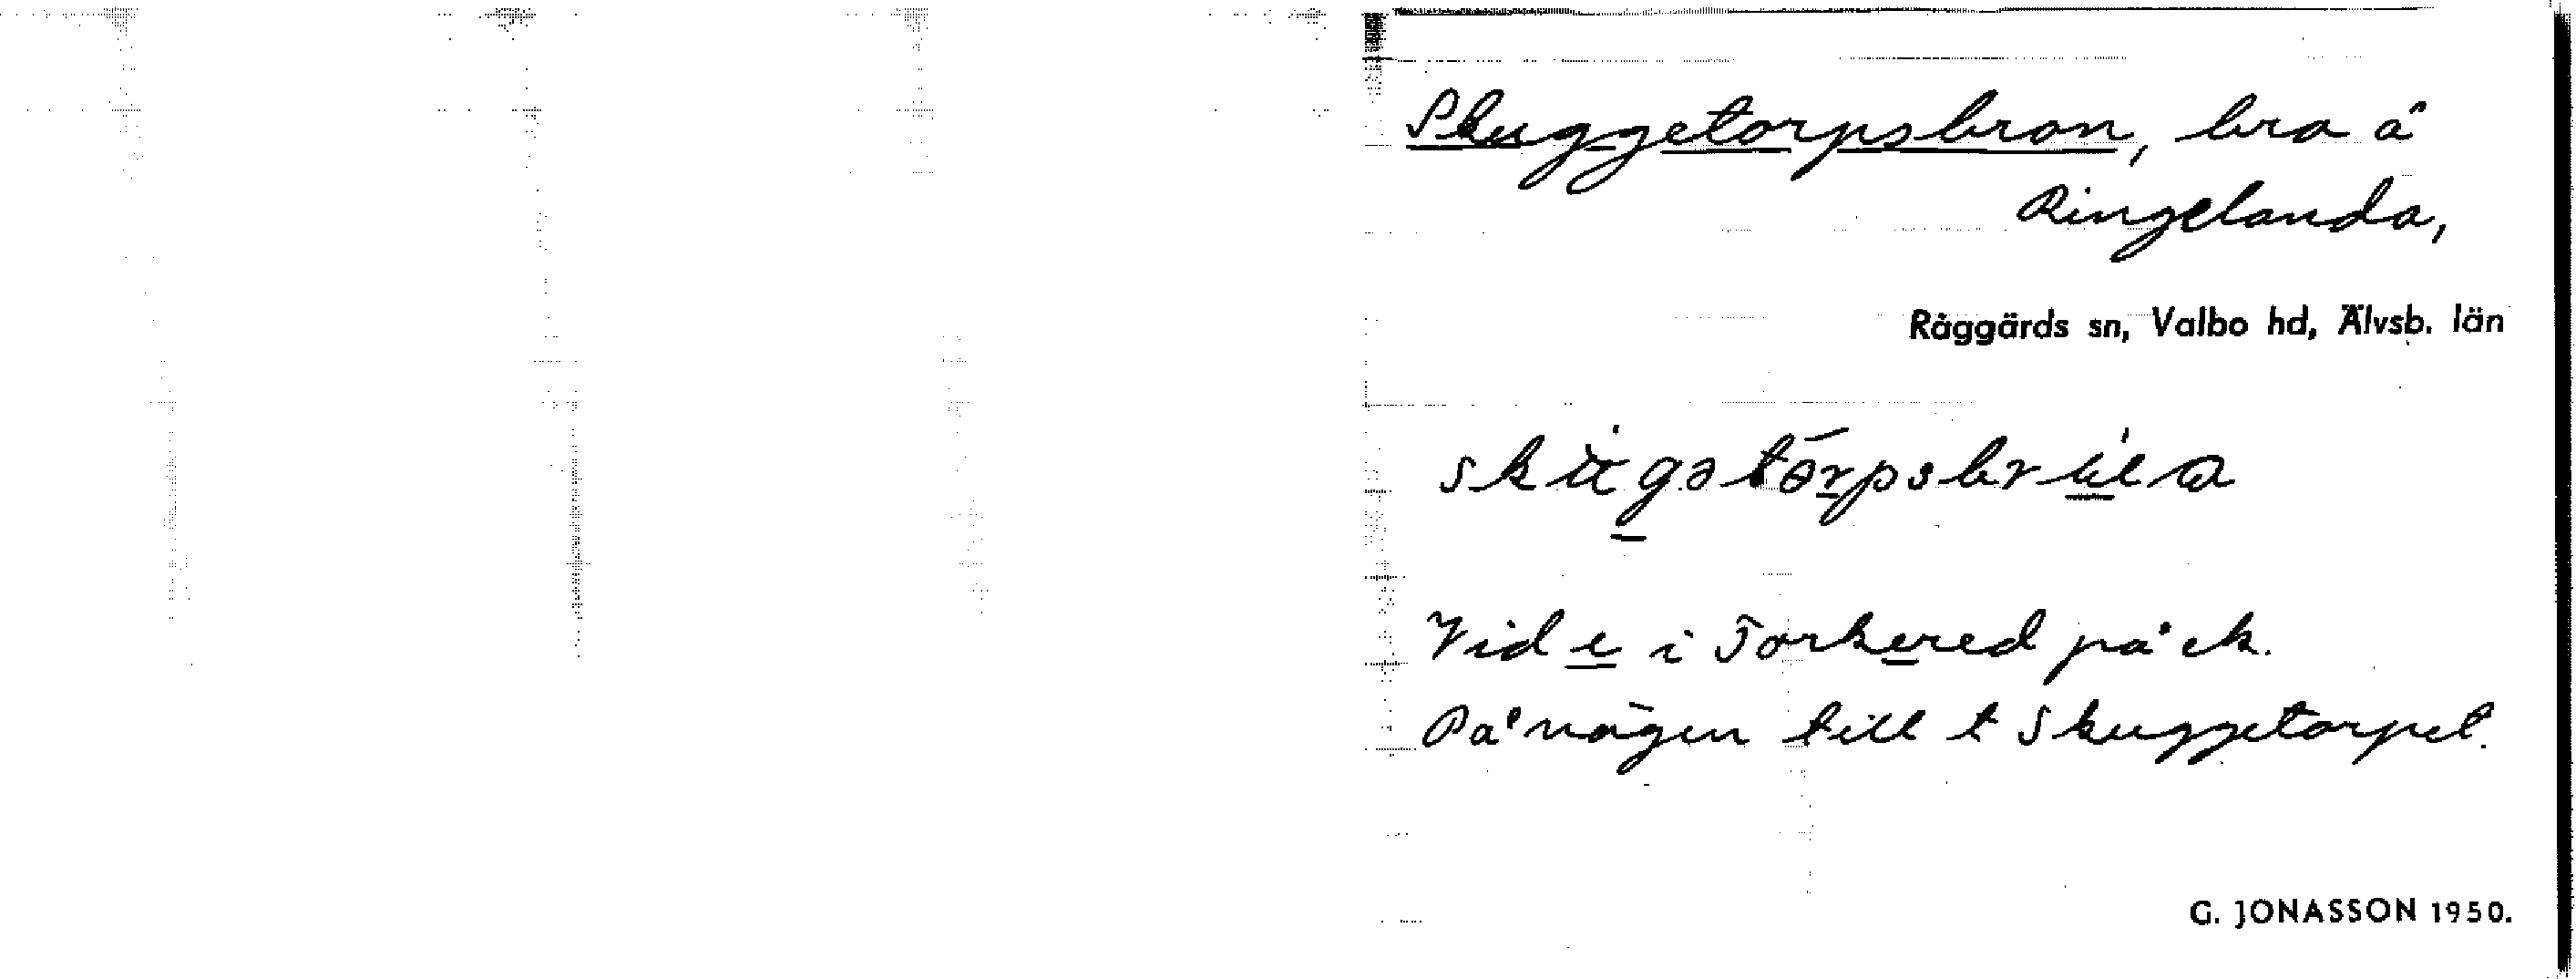 Skuggetorpsbron, bro å
Ringelanda,
Råggärds sn, Valbo hd, Älvsb. län
Vid e i Torkered på ek.
På vägen till t Skuggetorpet.
G. JONASSON 1950.